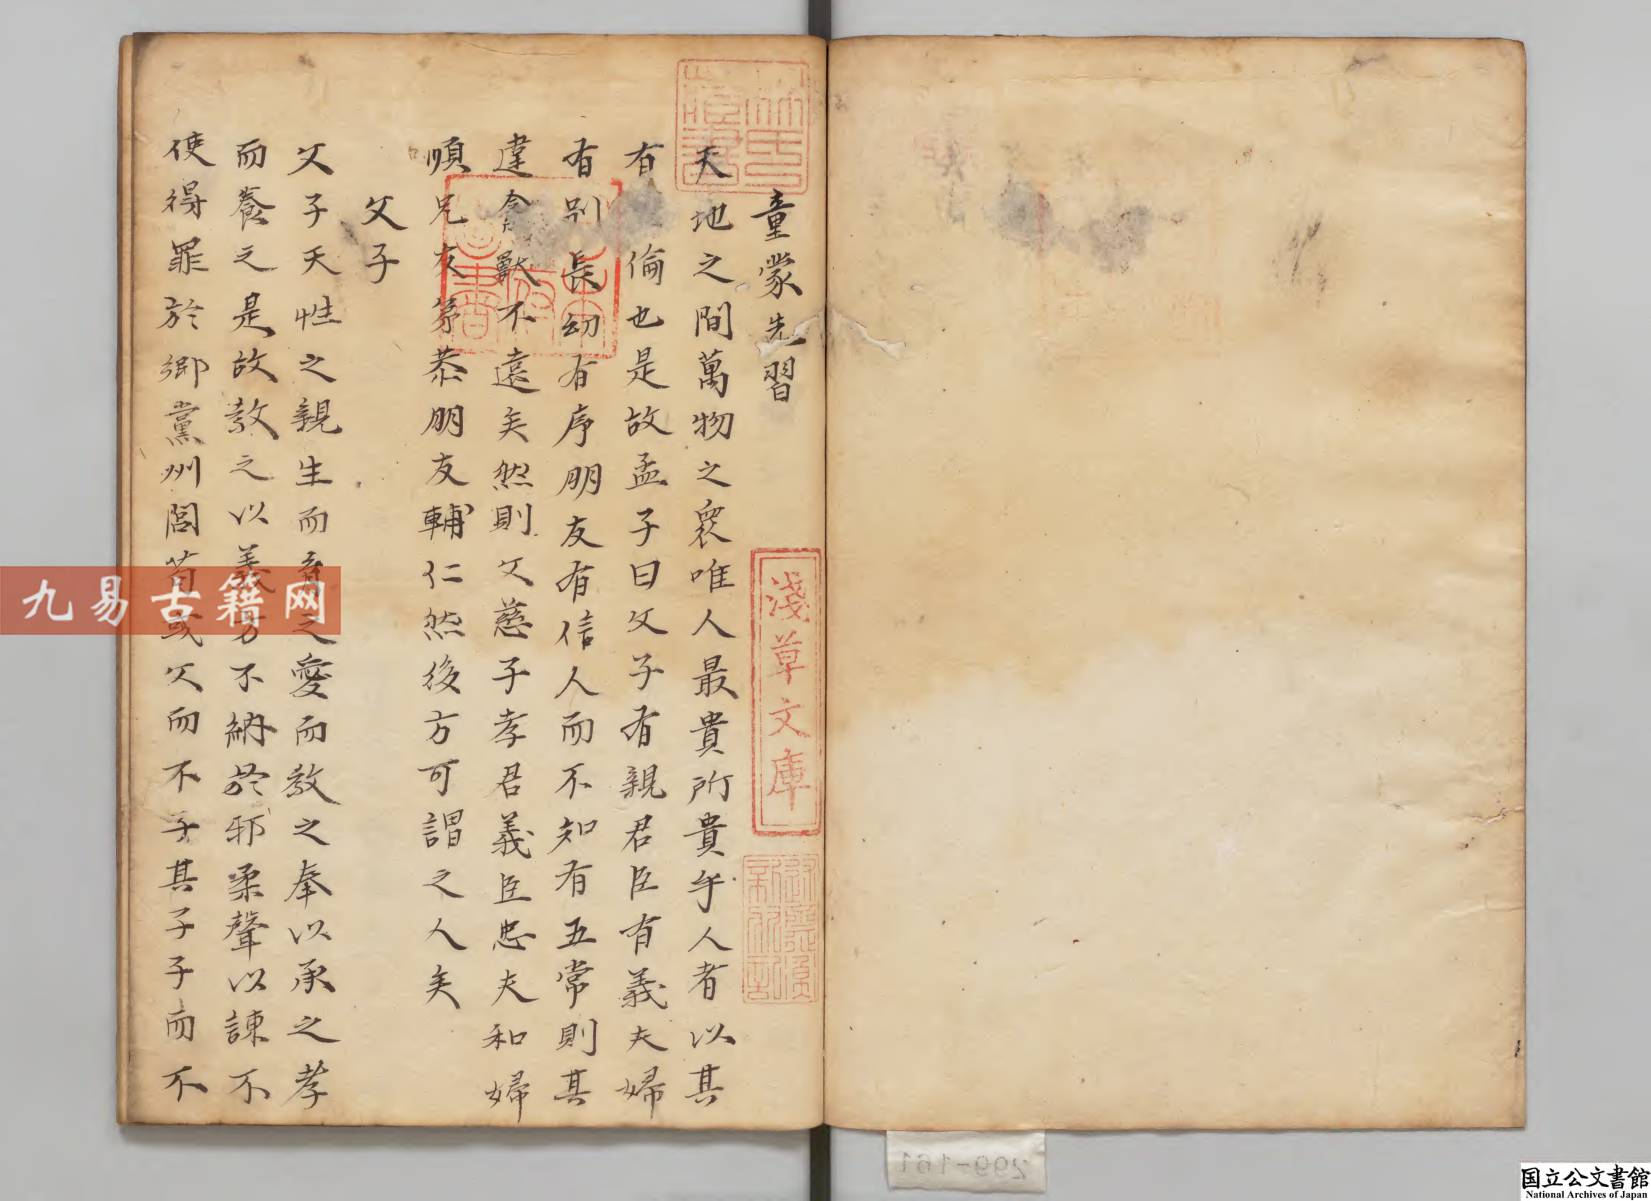 童蒙先習
天地之間萬物之衆唯人最貴所貴乎人者以其
有倫也是故孟子曰父子有親君臣有義夫婦
有別長幼有序朋友有信人而不知有五常則其
違禽獸不遠矣然則父慈子孝君義臣忠夫和婦
順兄友弟恭朋友輔仁然後方可謂之人矣
父子
父子天性之親生而育之愛而教之奉以承之孝
而養之是故教之以義方不納於邪柔聲以諫不
使得罪於鄉黨州閭苟或父而不子其子子而不
淺草文庫
林氏藏書
九易古籍网
299-161
国立公文書館
National Archives of Japan